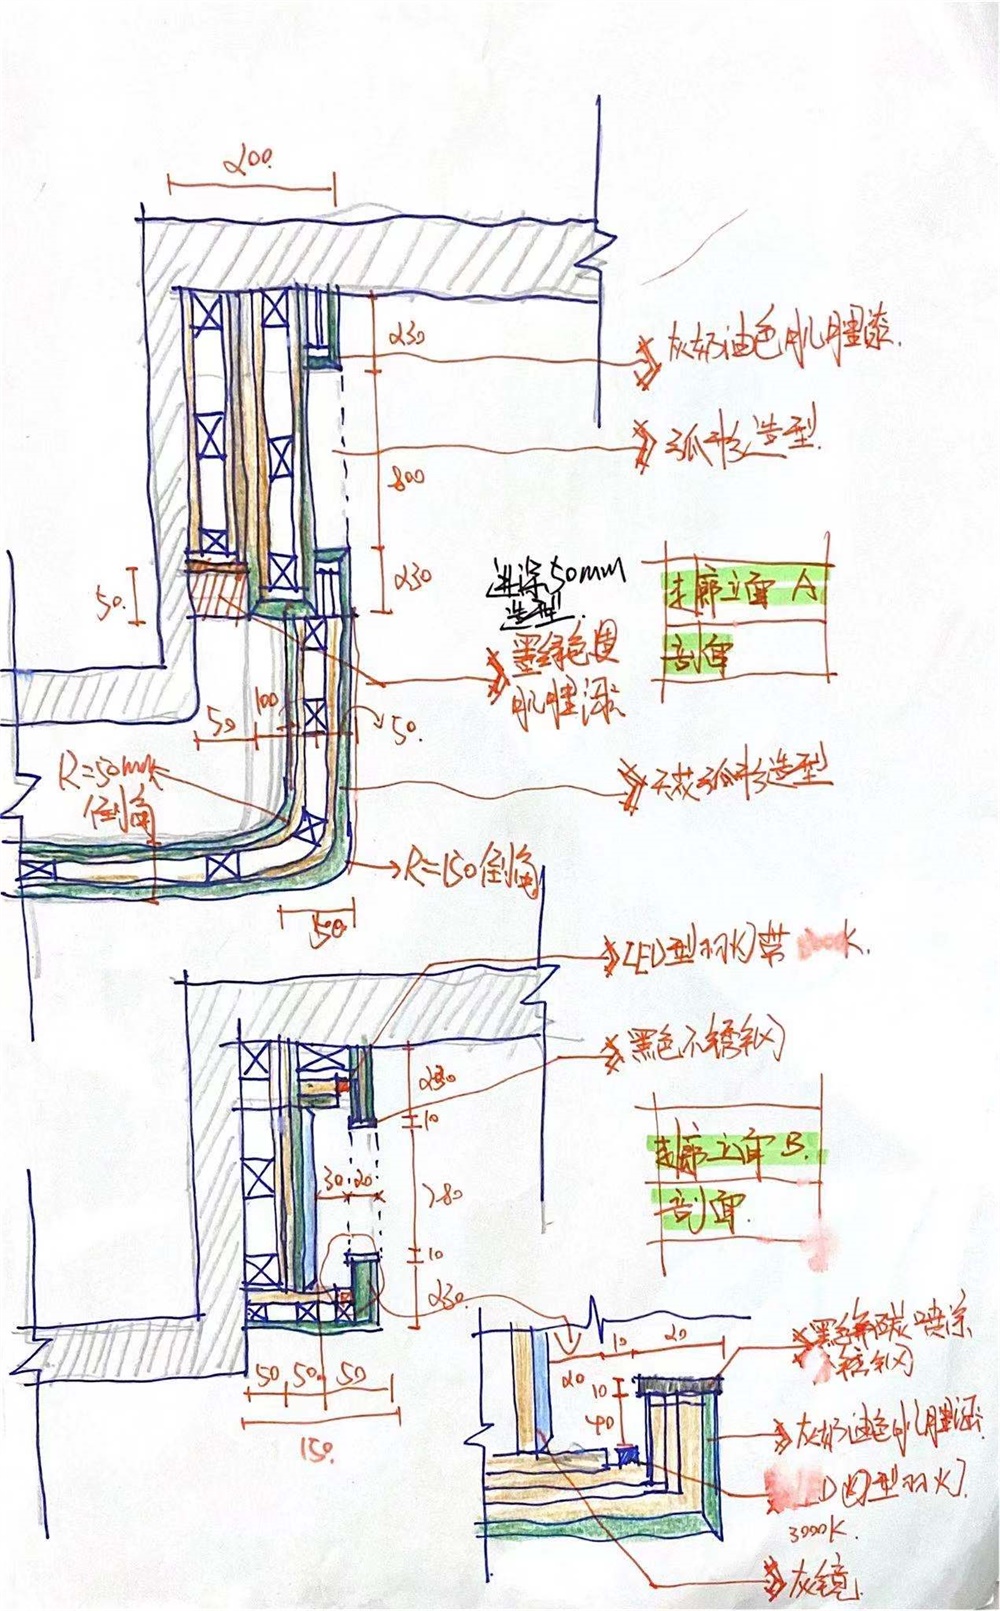 200.
230
灰奶油色肌理漆.
弧形造型.
800
230
50.
进深50mm
造型.
墨绿色
肌理漆
走廊立面 A
剖面
50
100
50.
R=50mm
倒角
天花弧形造型
R=150倒角
150
LED型材灯带
K.
黑色不锈钢
230
10
30 20
780
10
230.
走廊立面 B.
剖面.
50 50 50
150.
10 20
20
10
40
喷涂
灰奶油色肌理漆.
3000K.
灰镜.